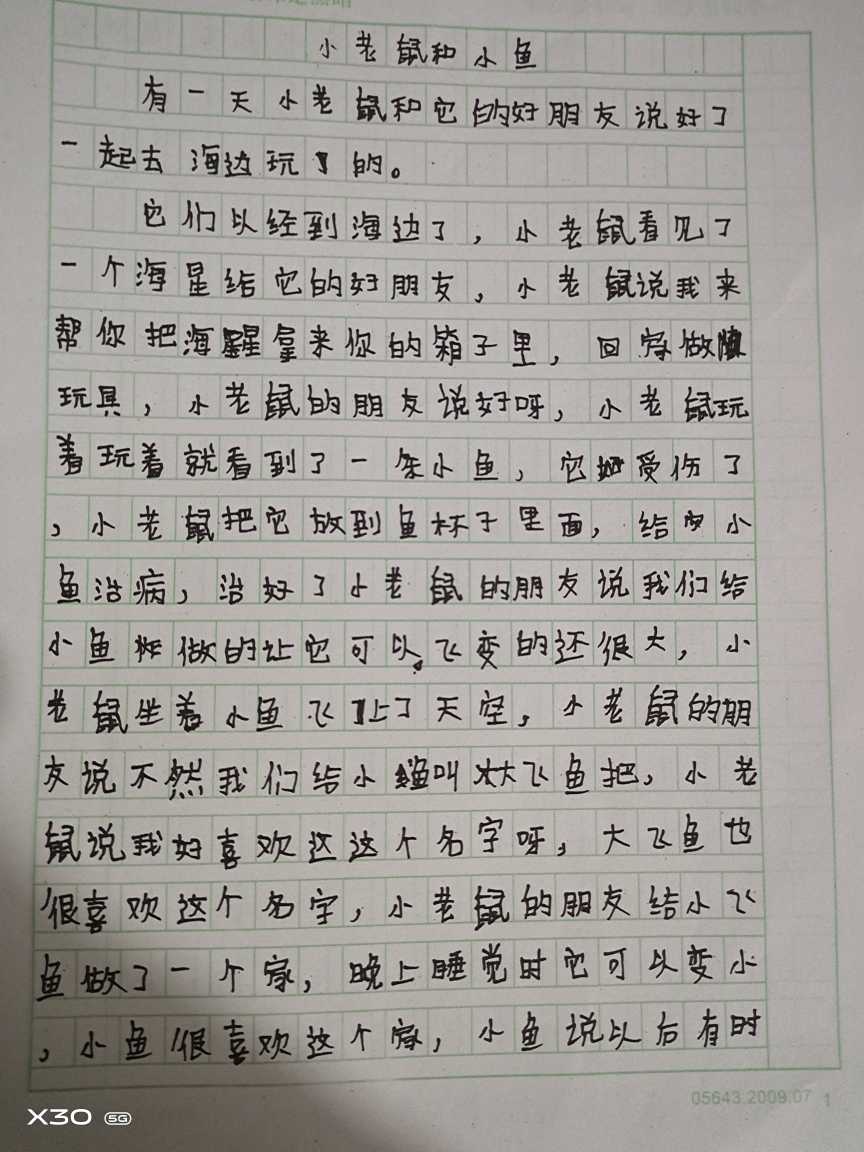 小老鼠和小鱼
有一天小老鼠和它的好朋友说好了
一起去海边玩了的。
它们以经到海边了，小老鼠看见了
一个海星给它的好朋友，小老鼠说我来
帮你把海星拿来你的箱子里，回家做
玩具，小老鼠的朋友说好呀，小老鼠玩
着玩着就看到了一条小鱼，它受伤了
，小老鼠把它放到鱼杯子里面，给小
鱼治病，治好了小老鼠的朋友说我们给
小鱼做的让它可以飞变的还很大，小
老鼠坐着小鱼飞上了天空，小老鼠的朋
友说不然我们给小鱼叫大飞鱼把，小老
鼠说我好喜欢这这个名字呀，大飞鱼也
很喜欢这个名字，小老鼠的朋友给小飞
鱼做了一个家，晚上睡觉时它可以变小
，小鱼很喜欢这个家，小鱼说以后有时
05643.2009.07 1
X30 5G